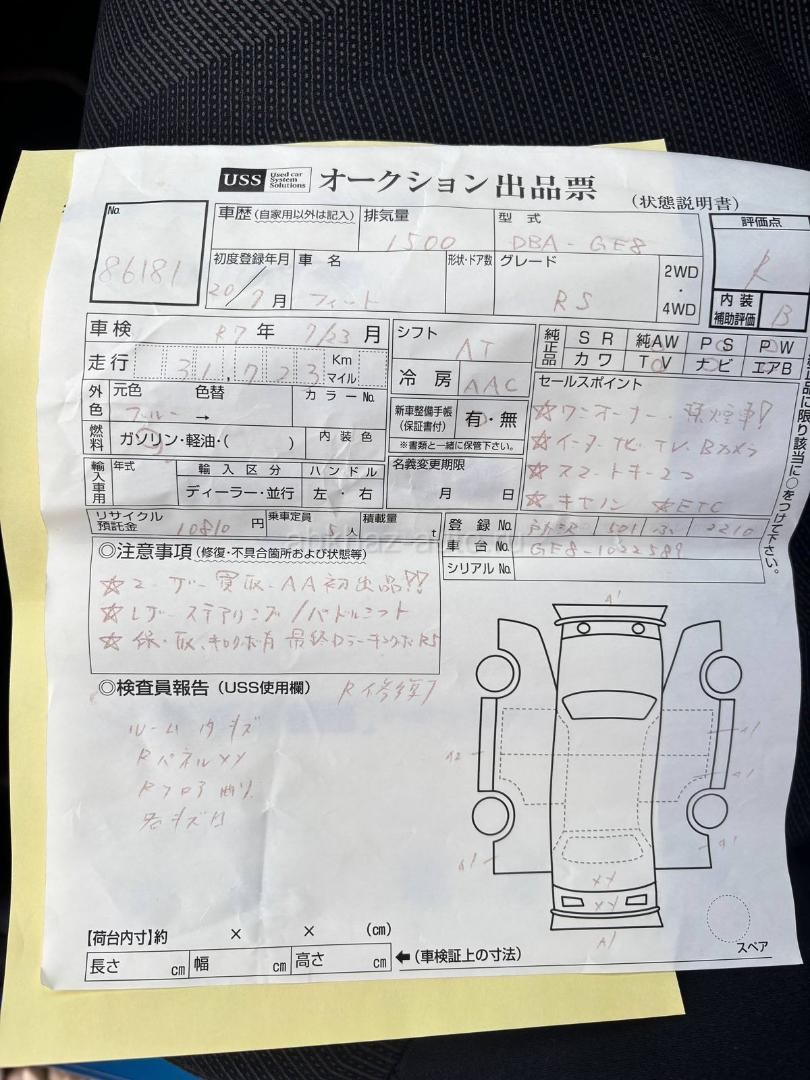 USS Used car System Solutions オークション 出品票 (状態説明書)
No. 86181
車歴 (自家用以外は記入) 排気量 1500 型式 DBA-GE8 評価点 R
初度登録年月 20/7月 車名 フィット 形状・ドア数 グレード RS 2WD・4WD
内装補助評価 B
車検 R7年 7/23月 シフト AT 純正品 SR 純AW PS PW
カワ TV ナビ エアB
走行 31,723 Km マイル 冷房 AAC
セールスポイント
外色 元色 ブルー → 色替 カラーNo. 新車整備手帳 (保証書付) 有・無
☆ワンオーナー 禁煙車!
燃料 ガソリン・軽油・( ) 内装色 ※書類と一緒に保管下さい。
☆インターナビ TV Bカメラ
輸入車用 年式 輸入区分 ハンドル 名義変更期限
☆スマートキー2つ
ディーラー・並行 左・右 月 日
☆ETC
リサイクル預託金 10810円 乗車定員 5人 積載量 t 登録No. 501 2210
車台No. GE8-1022589
シリアルNo.
◎注意事項 (修復・不具合箇所および状態等)
☆ユーザー買取 AA初出品!!
☆レザーステアリング/パドルシフト
☆保・取、キロク有
◎検査員報告 (USS使用欄) R修復有
ルーム内キズ
RパネルXX
Rフロア曲り
A1
A2
A1
A1
A1
A1
XX
XX
A1
スペア
【荷台内寸】約 × × (cm)
長さ cm 幅 cm 高さ cm ←(車検証上の寸法)
品に限り該当に○をつけて下さい。